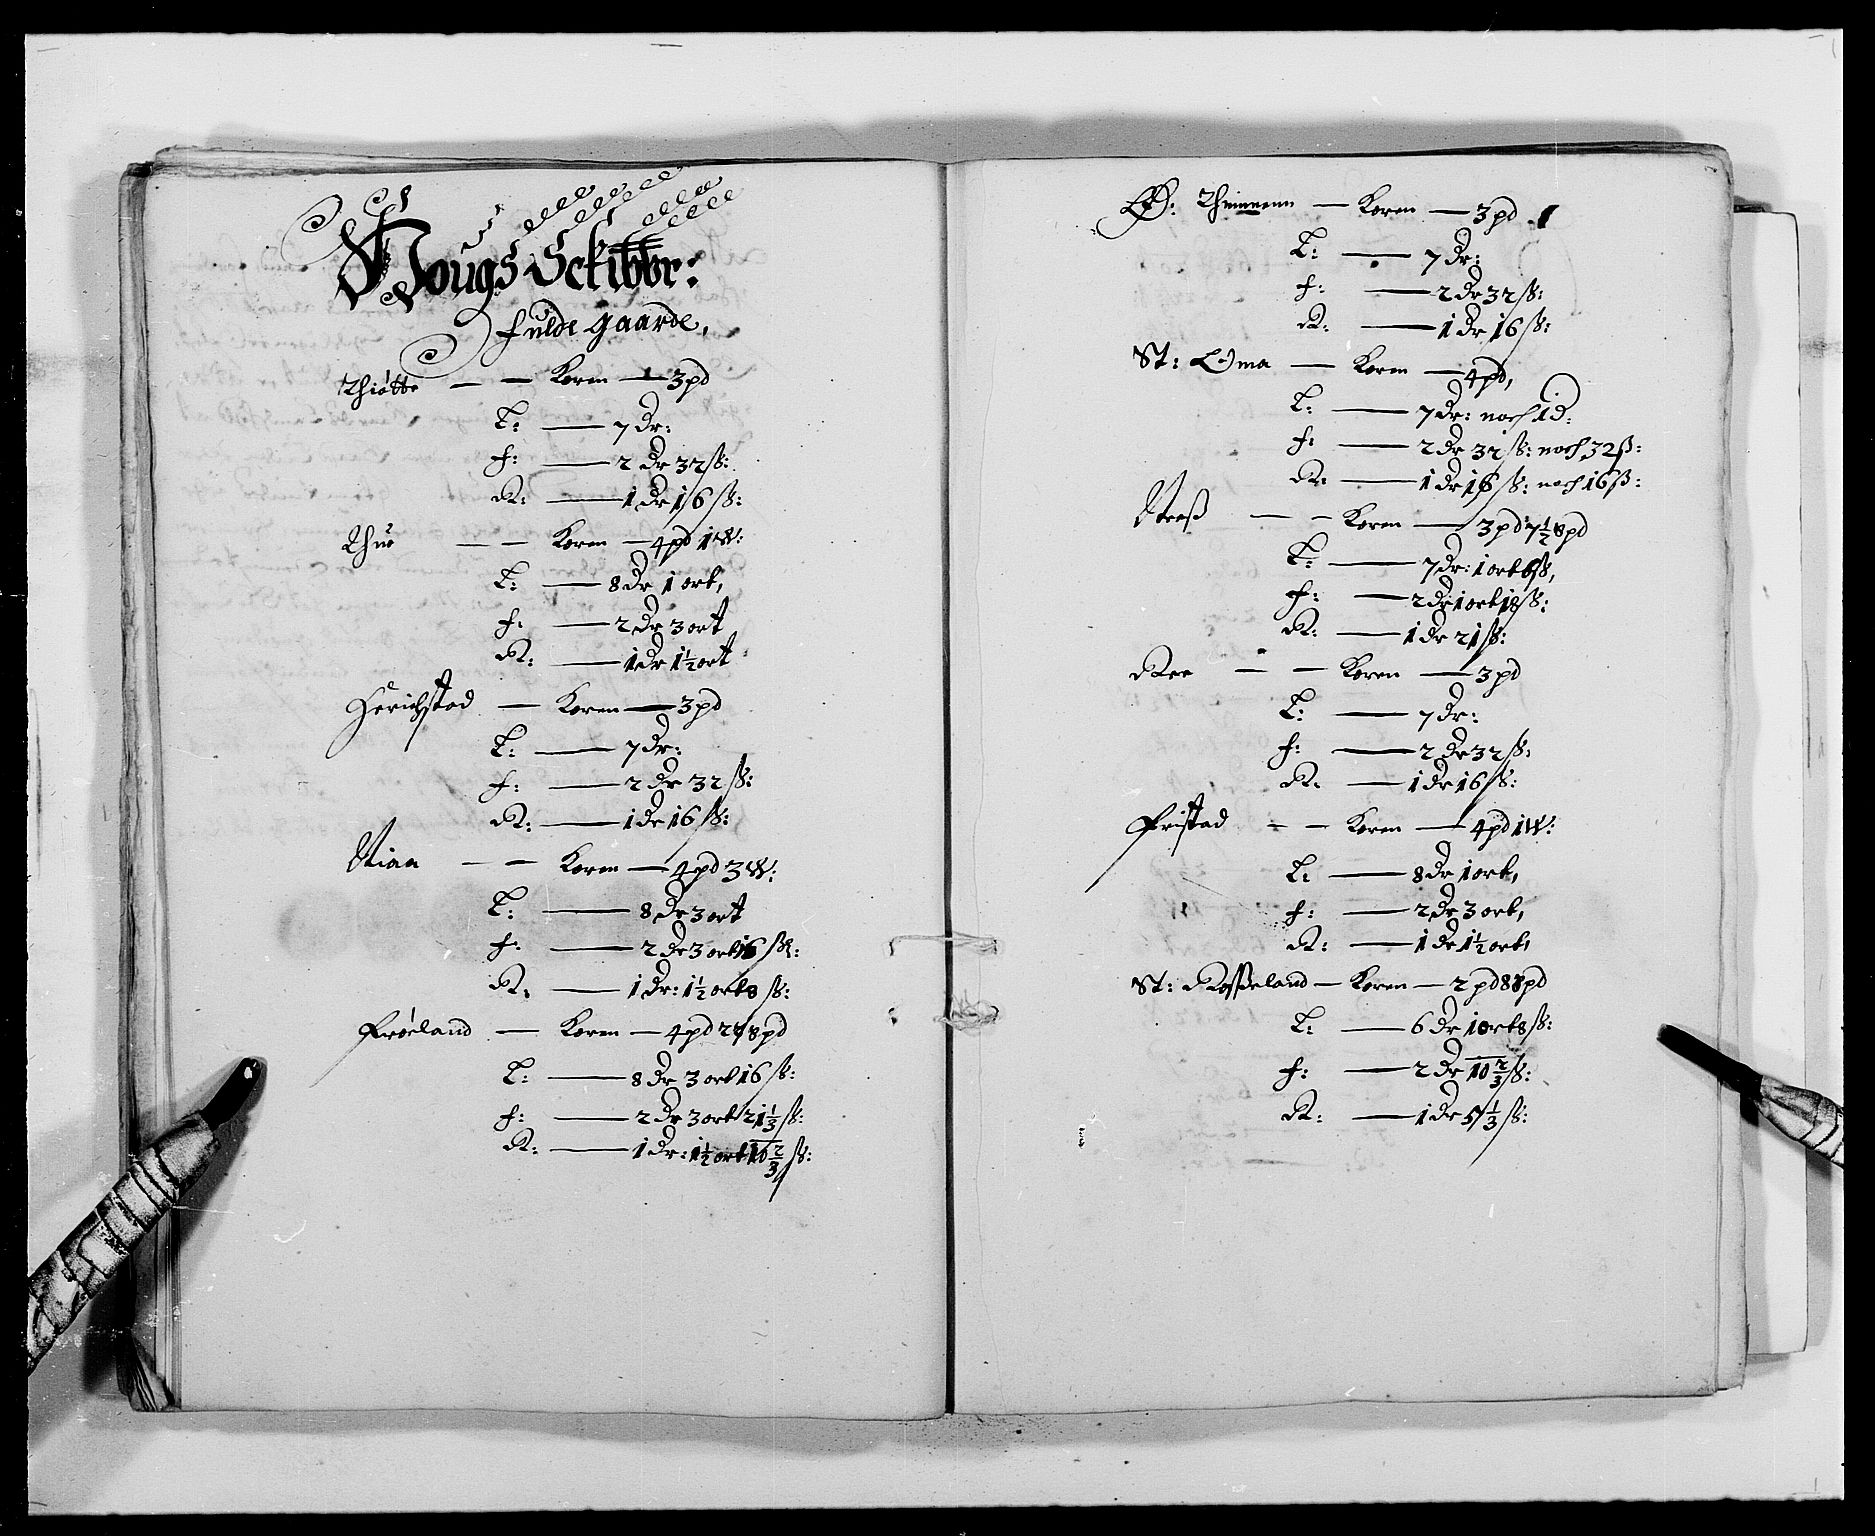 Hougs Skibbr:
Fulde gaarde,
Thiøtte — — Koren — 3 pd
L: — 7 Dr:
f: — 2 Dr 32 ß:
R: — 1 Dr 16 ß:
Thue — — Koren — 4 pd 1 W:
L: — 8 Dr 1 ort,
f: — 2 Dr 3 ort
R: — 1 Dr 1½ ort
Herichstad — Koren — 3 pd
L: — 7 Dr:
f: — 2 Dr 32 ß:
R: — 1 Dr 16 ß:
Niaa — — Koren — 4 pd 3 W:
L: — 8 Dr 3 ort
f: — 2 Dr 3 ort 16 ß:
R: — 1 Dr: 1½ ort 8 ß:
Frøeland — Koren — 4 pd 27 8pd
L: — 8 Dr 3 ort 16 ß:
f: — 2 Dr 3 ort 21⅓ ß:
R: — 1 Dr: 1½ ort 10⅔ ß:
Ø: Thimmenn — Koren — 3 pd 1
L: — 7 Dr:
f: — 2 Dr 32 ß:
R: — 1 Dr 16 ß:
St: Oma — Koren — 4 pd,
L: — 7 Dr: noch 1 D:
f: — 2 Dr 32 ß: noch 32 ß:
R: — 1 Dr 16 ß: noch 16 ß:
Næß — — Koren — 3 pd 7½ 8pd
L: — 7 Dr: 1 ort 6 ß,
f: — 2 Dr 1 ort 18 ß:
R: — 1 Dr 21 ß:
Ree — — Koren — 3 pd
L: — 7 Dr:
f: — 2 Dr 32 ß:
R: — 1 Dr 16 ß:
Fristad — — Koren — 4 pd 1 W:
L: — 8 Dr 1 ort,
f: — 2 Dr 3 ort,
R: — 1 Dr 1½ ort,
St: Rosseland — Koren — 2 pd 8 8pd
L: — 6 Dr 1 ort 8 ß:
f: — 2 Dr 10⅔ ß:
R: — 1 Dr 5⅓ ß: